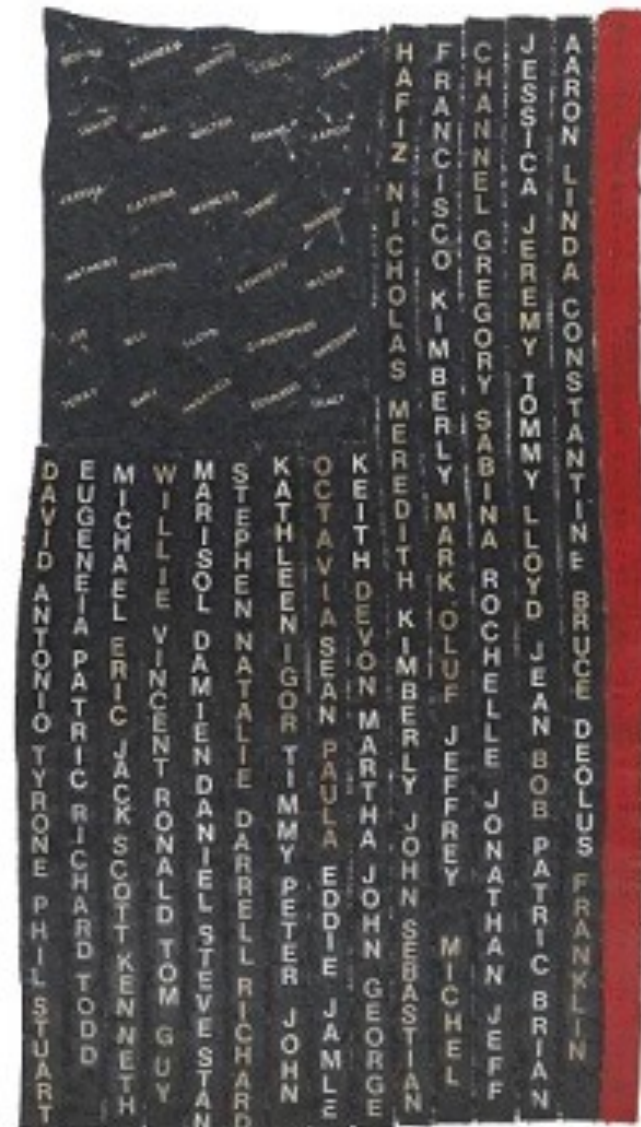 LESLIE
WALTER
AARON
CATRINA
ANTHONY
KENNETH
BILL
LLOYD
CHRISTOPHER
GREGORY
TERRY
GARY
TRACY
DAVID ANTONIO TYRONE PHIL STUART
EUGENEIA PATRIC RICHARD TODD
MICHAEL ERIC JACK SCOTT KENNETH
WILLIE VINCENT RONALD TOM GUY
MARISOL DAMIEN DANIEL STEVE STAN
STEPHEN NATALIE DARRELL RICHARD
KATHLEEN IGOR TIMMY PETER JOHN
OCTAVIA SEAN PAULA EDDIE JAMLE
KEITH DEVON MARTHA JOHN GEORGE
HAFIZ NICHOLAS MEREDITH KIMBERLY JOHN SEBASTIAN
FRANCISCO KIMBERLY MARK OLUF JEFFREY MICHEL
CHANNEL GREGORY SABINA ROCHELLE JONATHAN JEFF
JESSICA JEREMY TOMMY LLOYD JEAN BOB PATRIC BRIAN
AARON LINDA CONSTANTINE BRUCE DEOLUS FRANKLIN